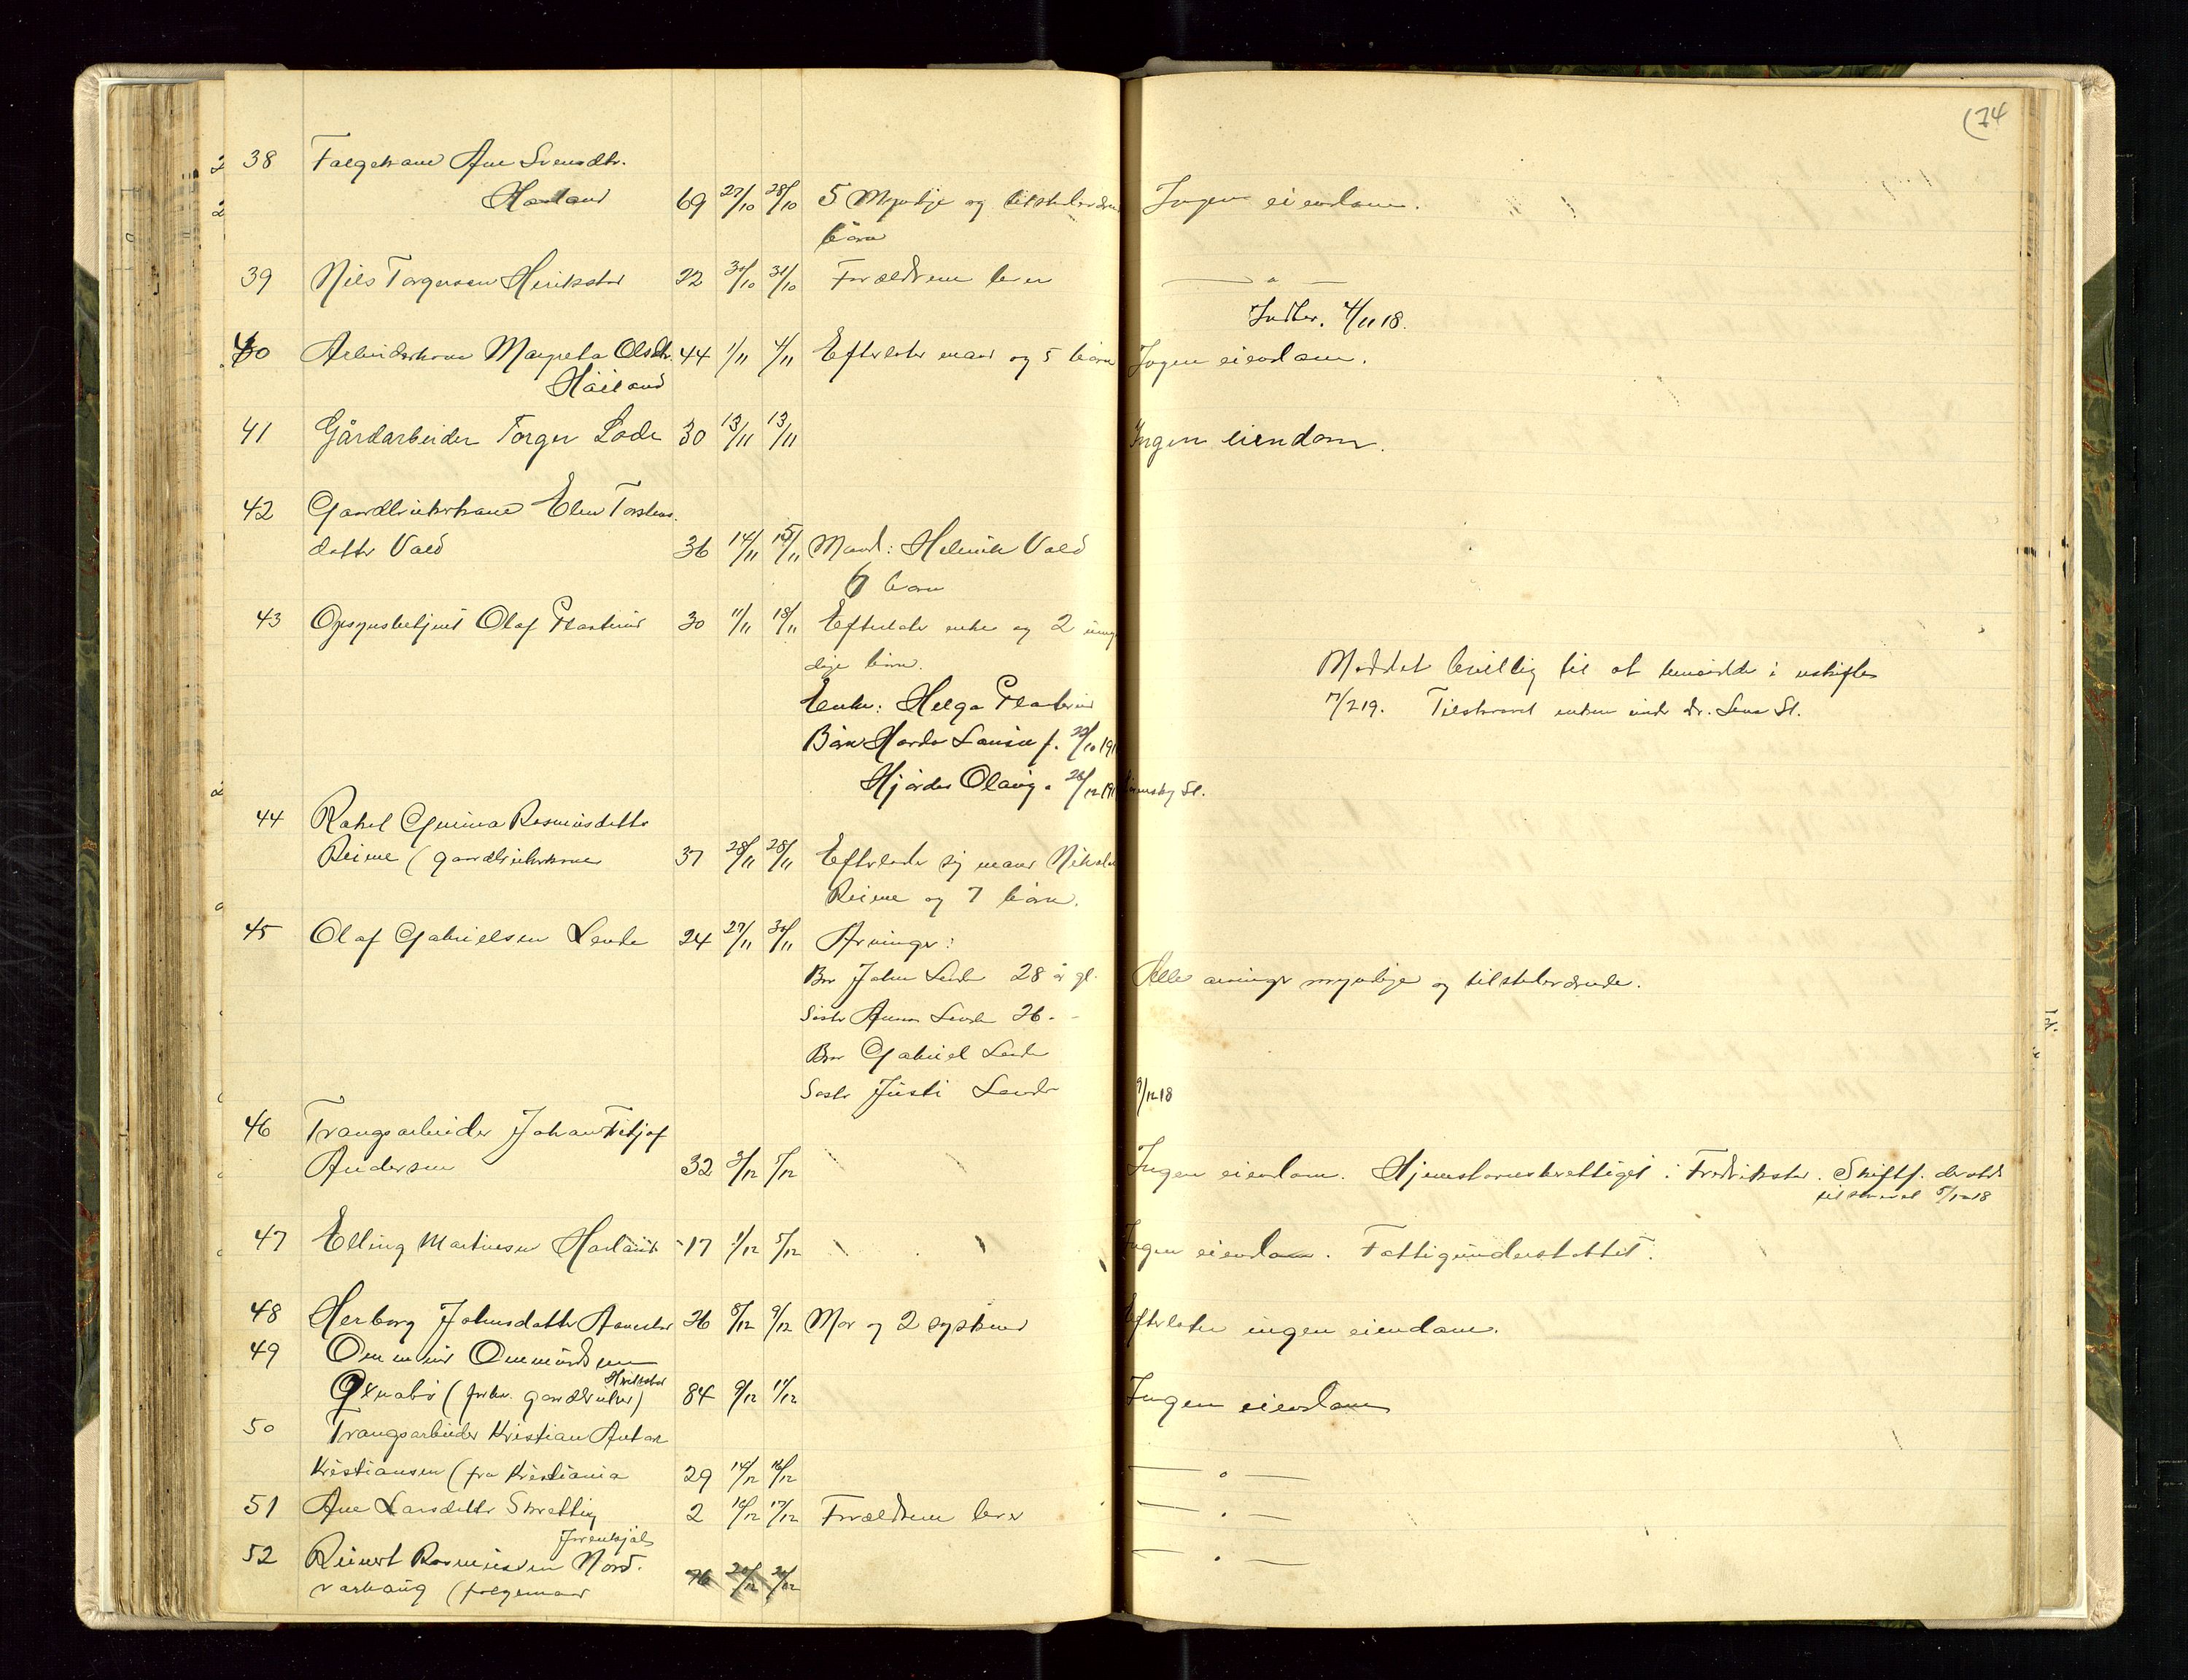 74
38 Følgekone Ane Svensdtr.
Haaland 69 27/10 28/10 5 Myndige og tilstedeværen Ingen eiendom.
børn
39 Nils Torgersen Herikstad 22 30/10 31/10 Forældrene lever — " —
Indber. 4/11 18.
40 Arbeiderkone Margreta Olsdtr. 44 1/11 4/11 Efterlater mand og 5 børn Ingen eiendom.
Høiland
41 Gårdarbeider Torger Lode 30 13/11 13/11 Ingen eiendom.
42 Gaardbrukerkone Elen Torstens
datter Vold 36 14/11 15/11 Mand: Helmik Vold
6 børn
43 Opsynsbetjent Olaf 30 11/11 18/11 Efterlater enke og 2 umyn
dige børn.
Meddelt bevillig til at hensidde i uskifte
Enke: Helga
17/2 19. Tilskrevet enken
Børn Lovise f. 20/10 191
Hjørdis Olaug " 26/12 191
44 Rakel Gurina Rasmusdatter
Reime (gaardbrukerkone 37 28/11 28/11 Efterlader sig mand Nikolai
Reime og 7 børn.
45 Olaf Gabrielsen Lende 24 27/11 30/11 Arvinger:
Bror John Lende 28 år gl. Alle arvinger myndige og tilstedeværende.
Søster Anna Lende 26 - -
Bror Gabriel Lende
Søster Justi Lende
9/12 18
46 Tvangsarbeider Johan Fritjof
Andersen 32 3/12 5/12 Ingen eiendom. Hjemstavnsberettiget i Fredrikstad. Skiftf. derstds
tilskrevet 5/12 18
47 Elling Martinsen Haaland 17 1/12 5/12 Ingen eiendom. Fattigunderstøttet.
48 Herborg Johnsdatter Aanestad 26 8/12 9/12 Mor og 2 syskend Efterlater ingen eiendom.
49 Ommund Ommundsen
Herikstad
(forhv. gaardbruker) 84 9/12 11/12 Ingen eiendom
50 Tvangsarbeider Kristian Anton
Kristiansen (fra Kristiania 29 14/12 16/12 — " —
51 Ane Larsdatter Skretting 2 16/12 17/12 Forældrene lever — " —
52 Reinert Rasmussen Nord. — " —
varhaug (følgemand 76 20/12